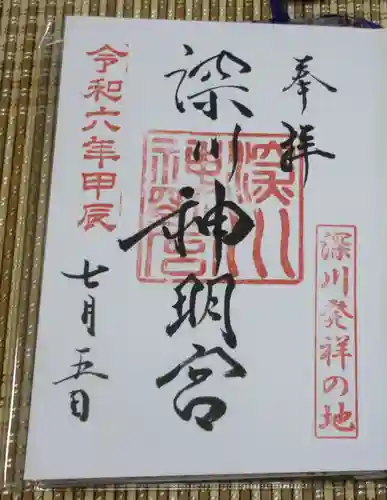 奉拝
深川発祥の地
深川神明宮
深川
神明宮
令和六年甲辰
七月五日